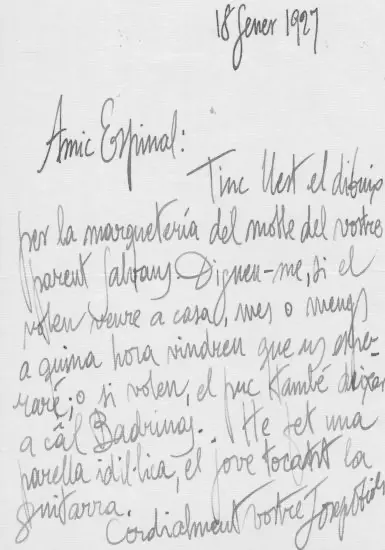 18 Gener 1927
Amic Espinal:
Tinc llest el dibuix
per la marquetería del motlle del vostre
parent Galvany. Digueu-me, si el
volen veure a casa, mes o menys
a quina hora vindreu que us espe-
raré; o si volen, el puc també deixar
a câl Badrinas. He fet una
parella idil·lica, el jove tocant la
guitarra.
Cordialment vostre Josep